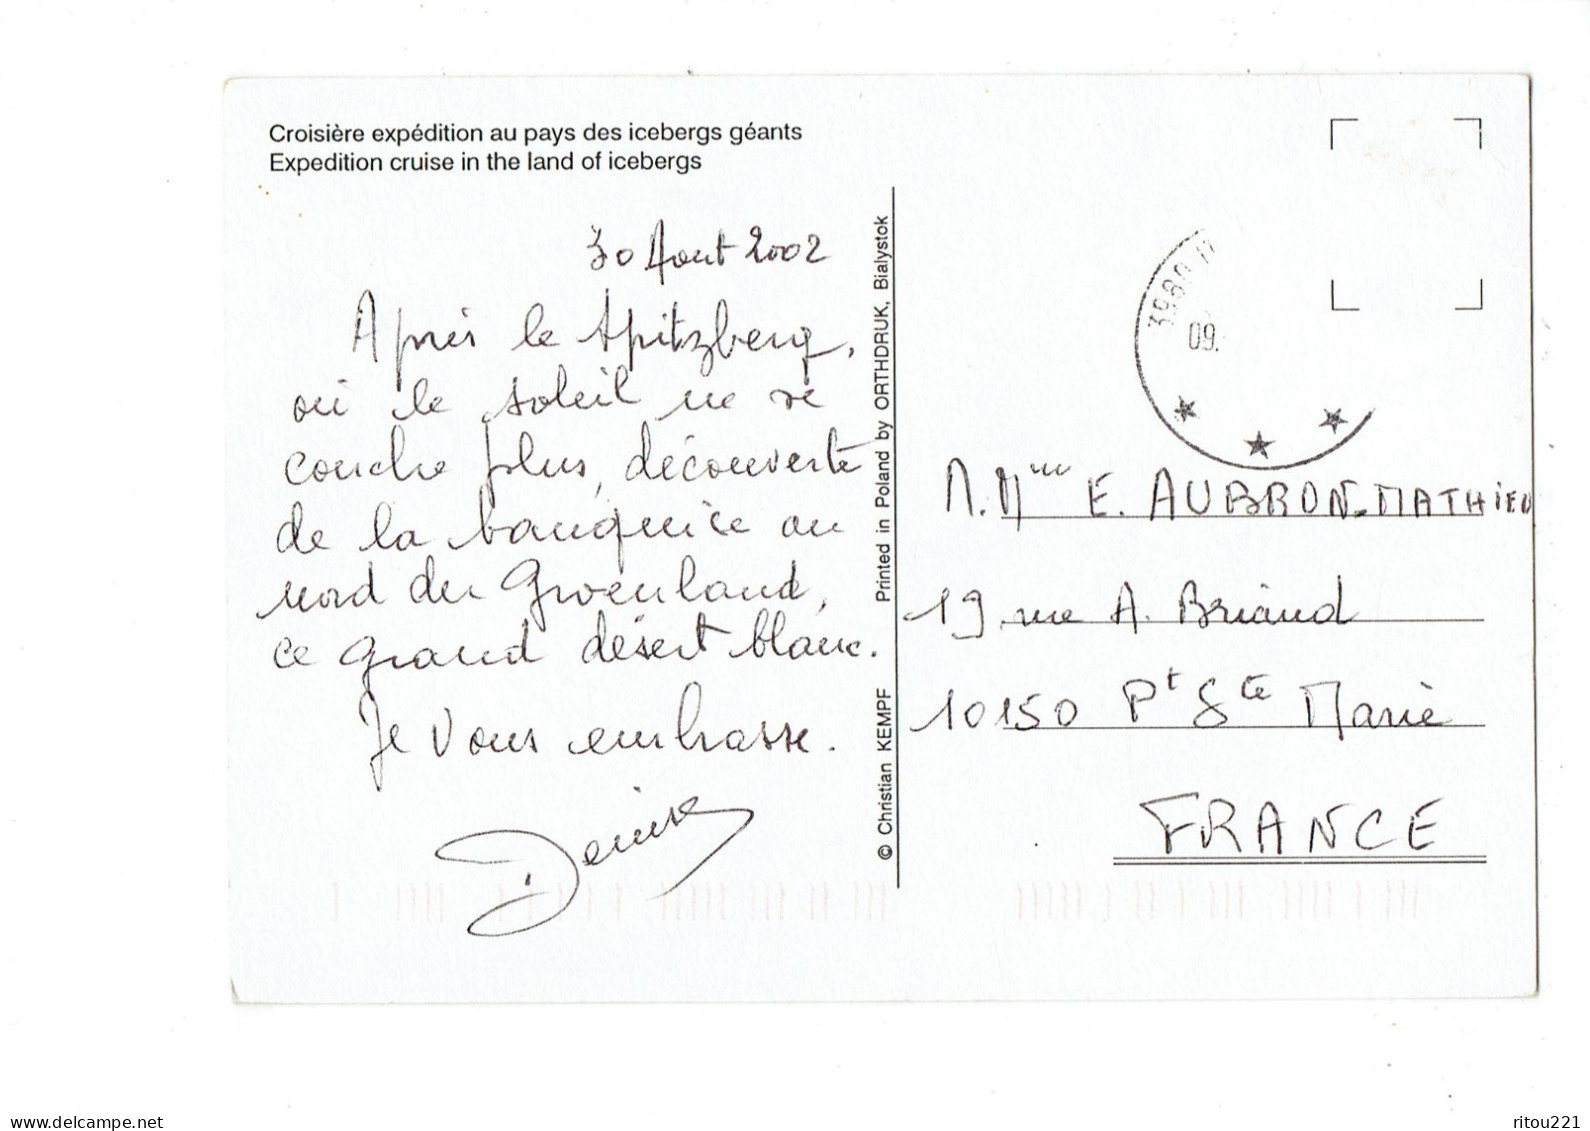 Croisière expédition au pays des icebergs géants
Expedition cruise in the land of icebergs
30 Aout 2002
Après le Spitzberg,
où le soleil ne se
couche plus, découverte
de la banquise au
nord du Groenland,
ce grand désert blanc.
Je vous embrasse.
Denise
© Christian KEMPF Printed in Poland by ORTHDRUK, Bialystok
3980
09.
M. Mme E. AUBRON-MATHIEU
19, rue A. Briand
10150 Pt Ste Marie
FRANCE
www.delcampe.net
ritou221